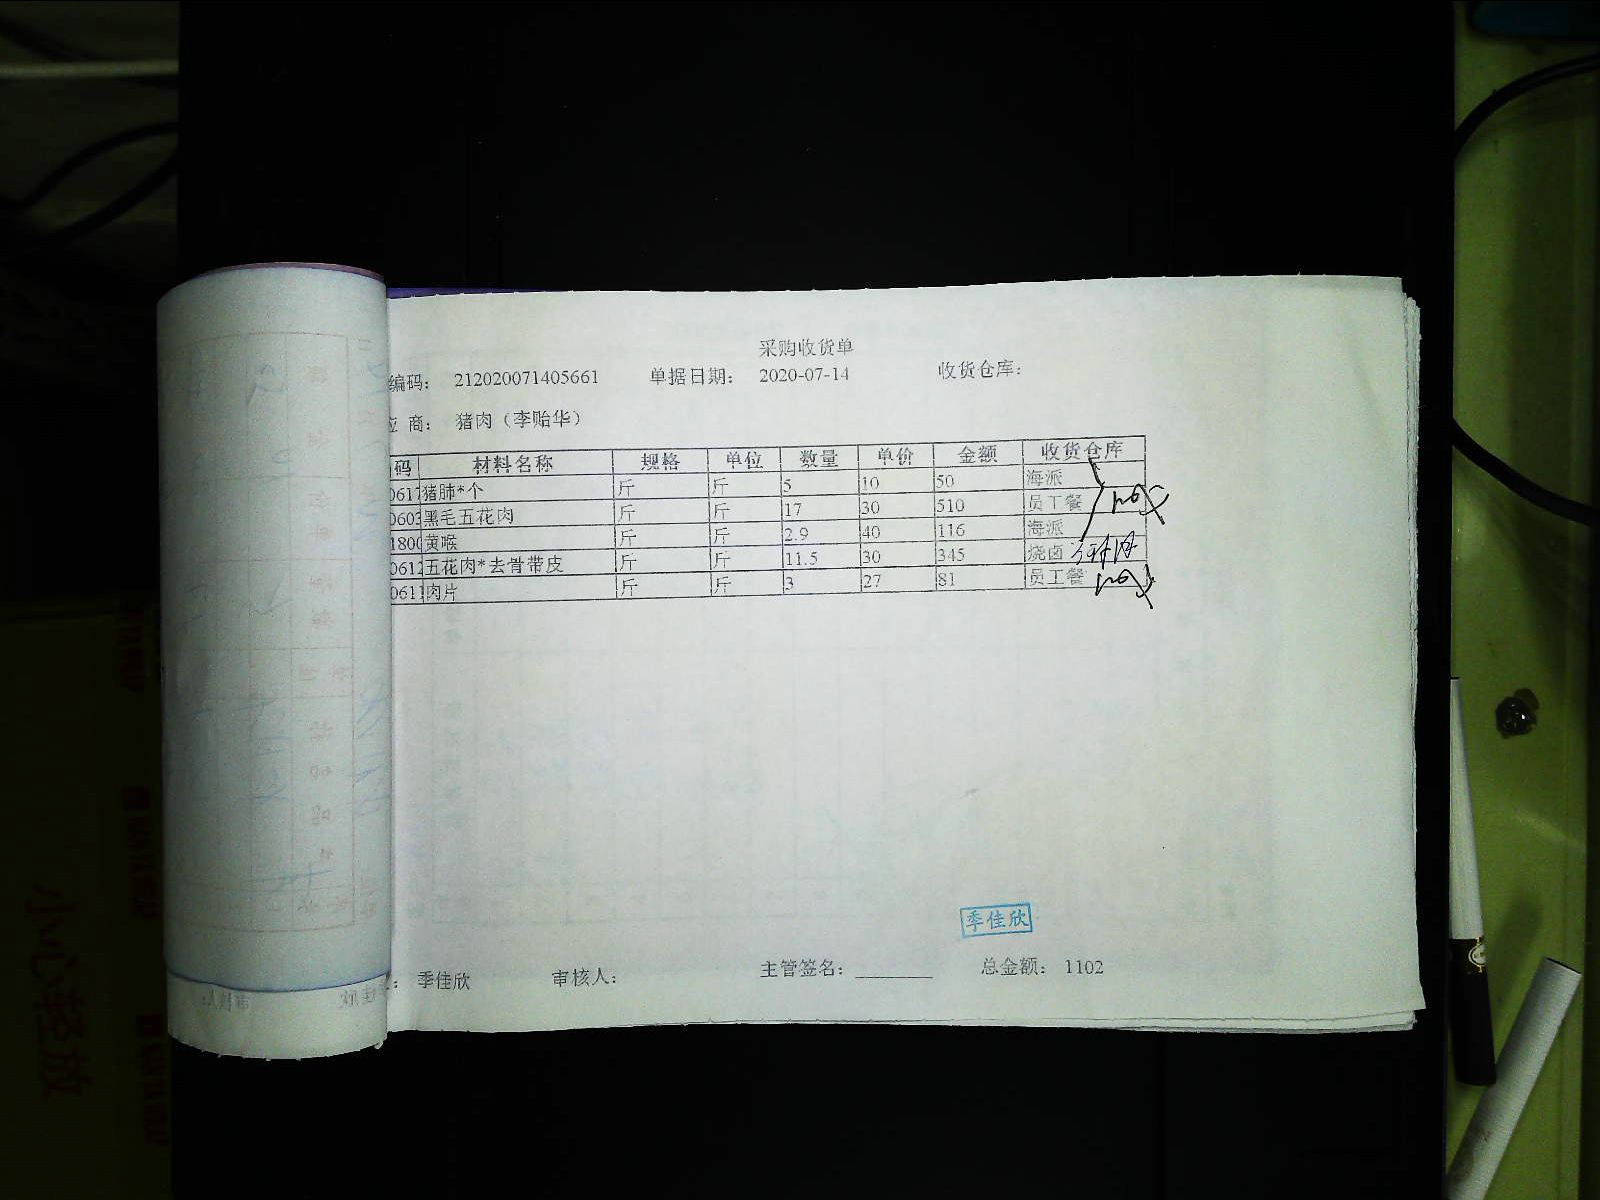 采购收货单
编码： 212020071405661 单据日期： 2020-07-14 收货仓库：
应 商： 猪肉（李贻华）
码 材料名称 规格 单位 数量 单价 金额 收货仓库
0617 猪肺*个 斤 斤 5 10 50 海派
0603 黑毛五花肉 斤 斤 17 30 510 员工餐
1800 黄喉 斤 斤 2.9 40 116 海派
0612 五花肉*去骨带皮 斤 斤 11.5 30 345 烧卤
0611 肉片 斤 斤 3 27 81 员工餐
季佳欣
： 季佳欣 审核人： 主管签名： 总金额： 1102
小心轻放